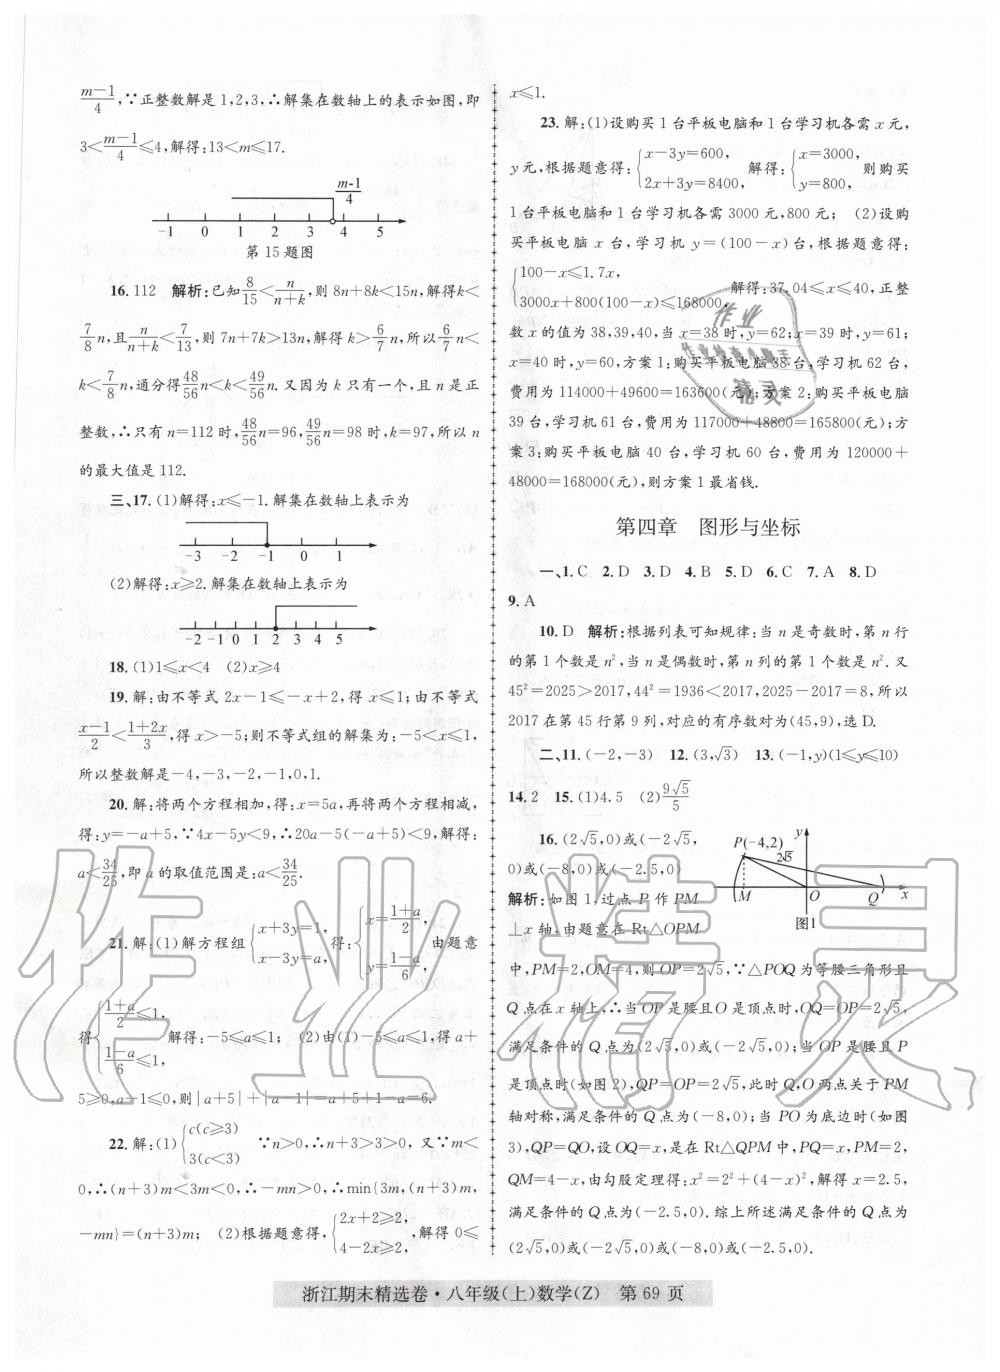 (m-1)/4,∵正整数解是1,2,3,∴解集在数轴上的表示如图,即
3<(m-1)/4≤4,解得:13<m≤17.
(m-1)/4
-1 0 1 2 3 4 5
第15题图
16.112 解析:已知8/15<n/(n+k),则8n+8k<15n,解得k<
7/8n,且n/(n+k)<7/13,则7n+7k>13n,解得k>6/7n,所以6/7n<
k<7/8n,通分得48/56n<k<49/56n.又因为k只有一个,且n是正
整数,∴只有n=112时,48/56n=96,49/56n=98时,k=97,所以n
的最大值是112.
三、17.(1)解得:x≤-1.解集在数轴上表示为
-3 -2 -1 0 1
(2)解得:x≥2.解集在数轴上表示为
-2 -1 0 1 2 3 4 5
18.(1)1≤x<4 (2)x≥4
19.解:由不等式2x-1≤-x+2,得x≤1;由不等式
(x-1)/2<(1+2x)/3,得x>-5;则不等式组的解集为:-5<x≤1,
所以整数解是-4,-3,-2,-1,0,1.
20.解:将两个方程相加,得:x=5a,再将两个方程相减,
得:y=-a+5,∵4x-5y<9,∴20a-5(-a+5)<9,解得:
a<34/25,即a的取值范围是:a<34/25.
21.解:(1)解方程组{x+3y=1, x-3y=a, 得:{x=(1+a)/2, y=(1-a)/6, 由题意
得{(1+a)/2≤1, (1-a)/6≤1, 解得:-5≤a≤1; (2)由(1)-5≤a≤1,得a+
5≥0,a-1≤0,则|a+5|+|a-1|=a+5+1-a=6.
22.解:(1){c(c≥3) 3(c<3) ∵n>0,∴n+3>3>0,又∵m<
0,∴(n+3)m<3m<0,∴-mn>0,∴min{3m,(n+3)m,
-mn}=(n+3)m; (2)根据题意得,{2x+2≥2, 4-2x≥2, 解得0≤
x≤1.
23.解:(1)设购买1台平板电脑和1台学习机各需x元,
y元,根据题意得:{x-3y=600, 2x+3y=8400, 解得:{x=3000, y=800, 则购买
1台平板电脑和1台学习机各需3000元,800元; (2)设购
买平板电脑x台,学习机y=(100-x)台,根据题意得:
{100-x≤1.7x, 3000x+800(100-x)≤168000, 解得:37.04≤x≤40,正整
数x的值为38,39,40,当x=38时,y=62;x=39时,y=61;
x=40时,y=60,方案1:购买平板电脑38台,学习机62台,
费用为114000+49600=163600(元);方案2:购买平板电脑
39台,学习机61台,费用为117000+48800=165800(元);方
案3:购买平板电脑40台,学习机60台,费用为120000+
48000=168000(元),则方案1最省钱.
第四章 图形与坐标
一、1.C 2.D 3.D 4.B 5.D 6.C 7.A 8.D
9.A
10.D 解析:根据列表可知规律:当n是奇数时,第n行
的第1个数是n²,当n是偶数时,第n列的第1个数是n².又
45²=2025>2017,44²=1936<2017,2025-2017=8,所以
2017在第45行第9列,对应的有序数对为(45,9),选D.
二、11.(-2,-3) 12.(3,√3) 13.(-1,y)(1≤y≤10)
14.2 15.(1)4.5 (2)9√5/5
16.(2√5,0)或(-2√5,
0)或(-8,0)或(-2.5,0)
解析:如图1,过点P作PM
⊥x轴,由题意在Rt△OPM
P(-4,2) y
2√5
M O Q x
图1
中,PM=2,OM=4,则OP=2√5,∵△POQ为等腰三角形且
Q点在x轴上,∴当OP是腰且O是顶点时,OQ=OP=2√5,
满足条件的Q点为(2√5,0)或(-2√5,0);当OP是腰且P
是顶点时(如图2),QP=OP=2√5,此时Q、O两点关于PM
轴对称,满足条件的Q点为(-8,0);当PO为底边时(如图
3),QP=QO,设OQ=x,是在Rt△QPM中,PQ=x,PM=2,
QM=4-x,由勾股定理得:x²=2²+(4-x)²,解得x=2.5,
满足条件的Q点为(-2.5,0).综上所述满足条件的Q点为
(2√5,0)或(-2√5,0)或(-8,0)或(-2.5,0).
浙江期末精选卷·八年级(上)数学(Z) 第69页
作业精灵